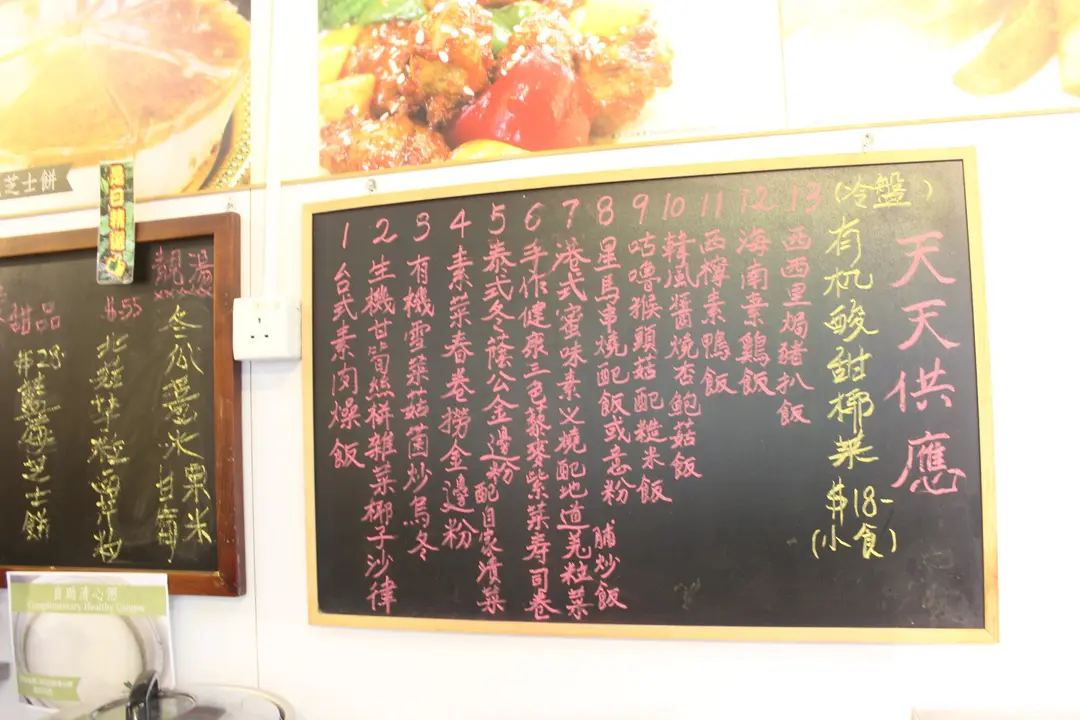 芝士餅
靚湯
$55
甜品
$28
芝士餅
天天供應
(冷盤)
有机酸甜椰菜 $18-
(小食)
1 台式素肉燥飯
2 生機甘筍絲拼雜菜椰子沙律
3 有機雪菜菇菌炒烏冬
4 素菜春卷撈金邊粉
5 泰式冬蔭公金邊粉配自家漬菜
6 手作健康三色藜麥紫菜寿司卷
7 港式蜜味素义燒配地道芫粒菜
脯炒飯
8 星馬串燒配飯或意粉
9 咕嚕猴頭菇配糙米飯
10 韓風醬燒杏鮑菇飯
11 西檸素鴨飯
12 海南素鷄飯
13 西西里焗豬扒飯
Complimentary Healthy Congee